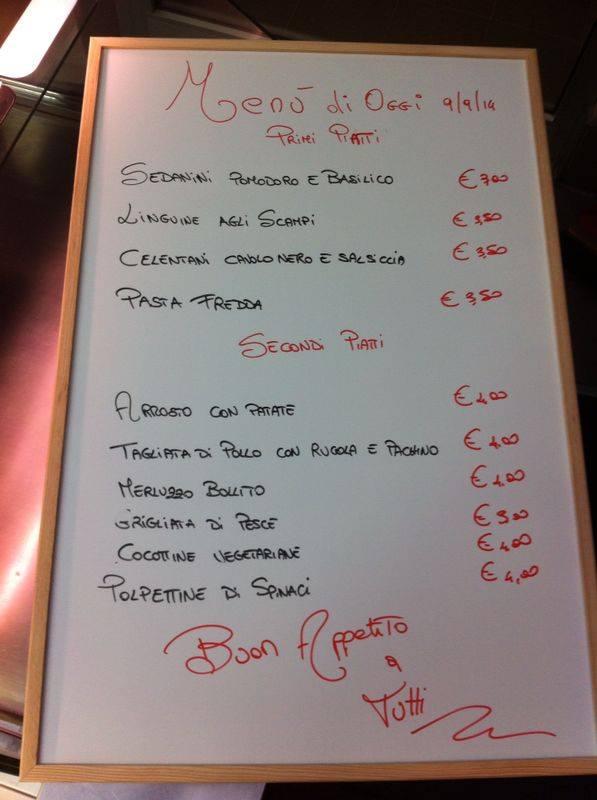 Menù di Oggi 9/9/14
Primi Piatti
Sedanini pomodoro e Basilico € 3,00
Linguine agli Scampi € 3,50
Celentani cavolo nero e salsiccia € 3,50
Pasta Fredda € 3,50
Secondi Piatti
Arrosto con patate € 4,00
Tagliata di Pollo con Rugola e Pachino € 4,00
Merluzzo Bollito € 4,00
Grigliata di Pesce €
Cocottine vegetariane € 4,00
Polpettine di Spinaci € 4,00
Buon Appetito
a
Tutti